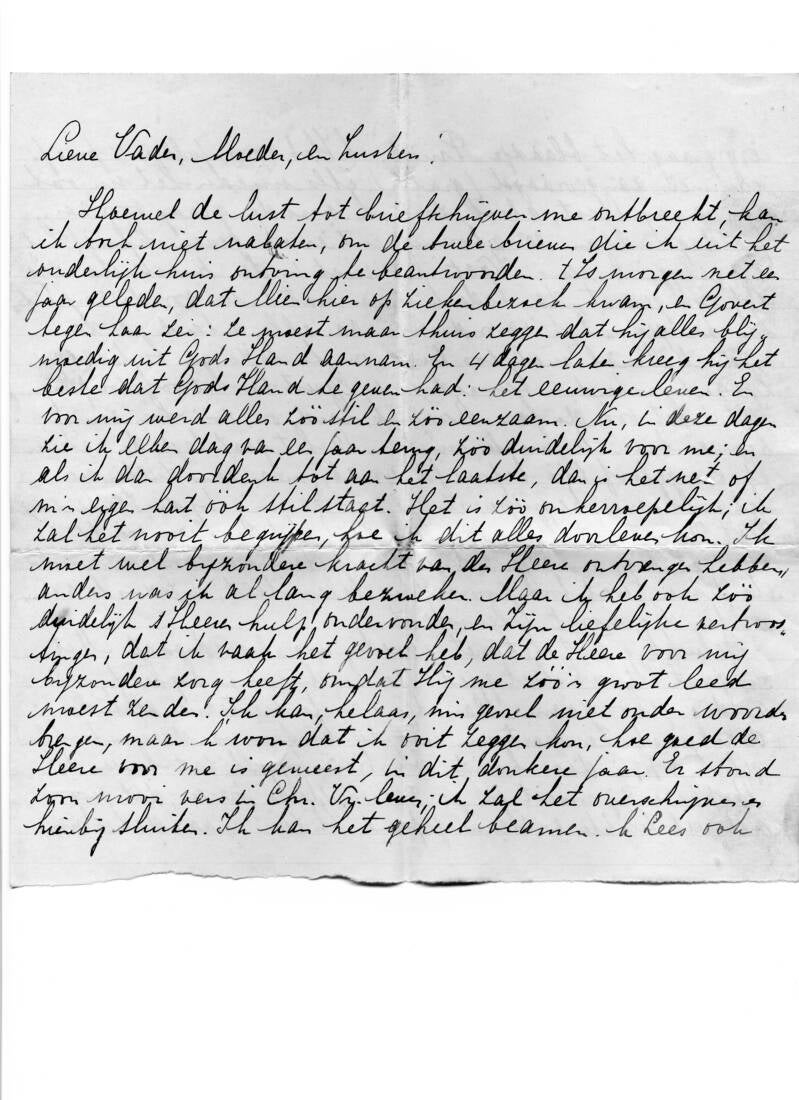 Lieve Vader, Moeder, en Zusters!
Hoewel de lust tot briefschrijven me ontbreekt, kan
ik toch niet nalaten, om de twee brieven die ik uit het
ouderlijk huis ontving te beantwoorden. 't Is morgen net een
jaar geleden, dat Mien hier op ziekenbezoek kwam, en Govert
tegen haar zei: ze moest maar thuis zeggen dat hij alles blij-
moedig uit Gods Hand aannam. En 4 dagen later kreeg hij het
beste dat Gods Hand te geven had: het eeuwige leven. En
voor mij werd alles zóó stil en zóó eenzaam. Nu, in deze dagen
zie ik elken dag van een jaar terug, zóó duidelijk voor me; en
als ik dan doordenk tot aan het laatste, dan is het net of
m'n eigen hart óók stil staat. Het is zóó onherroepelijk; ik
zal het nooit begrijpen, hoe ik dit alles doorleven kon. Ik
moet wel byzondere kracht van den Heere ontvangen hebben,
anders was ik al lang bezweken. Maar ik heb ook zóó
duidelijk 's Heeren hulp ondervonden, en Zijn liefelijke vertroos-
tingen, dat ik vaak het gevoel heb, dat de Heere voor mij
byzondere zorg heeft, omdat Hij me zóó'n groot leed
moest zenden. Ik kan, helaas, m'n gevoel niet onder woorden
brengen, maar 'k wou dat ik ooit zeggen kon, hoe goed de
Heere voor me is geweest, in dit donkere jaar. Er stond
zoo'n mooi vers in Chr. Vr. leven; ik zal het overschrijven en
hierbij sluiten. Ik kan het geheel beamen. 'k Lees ook